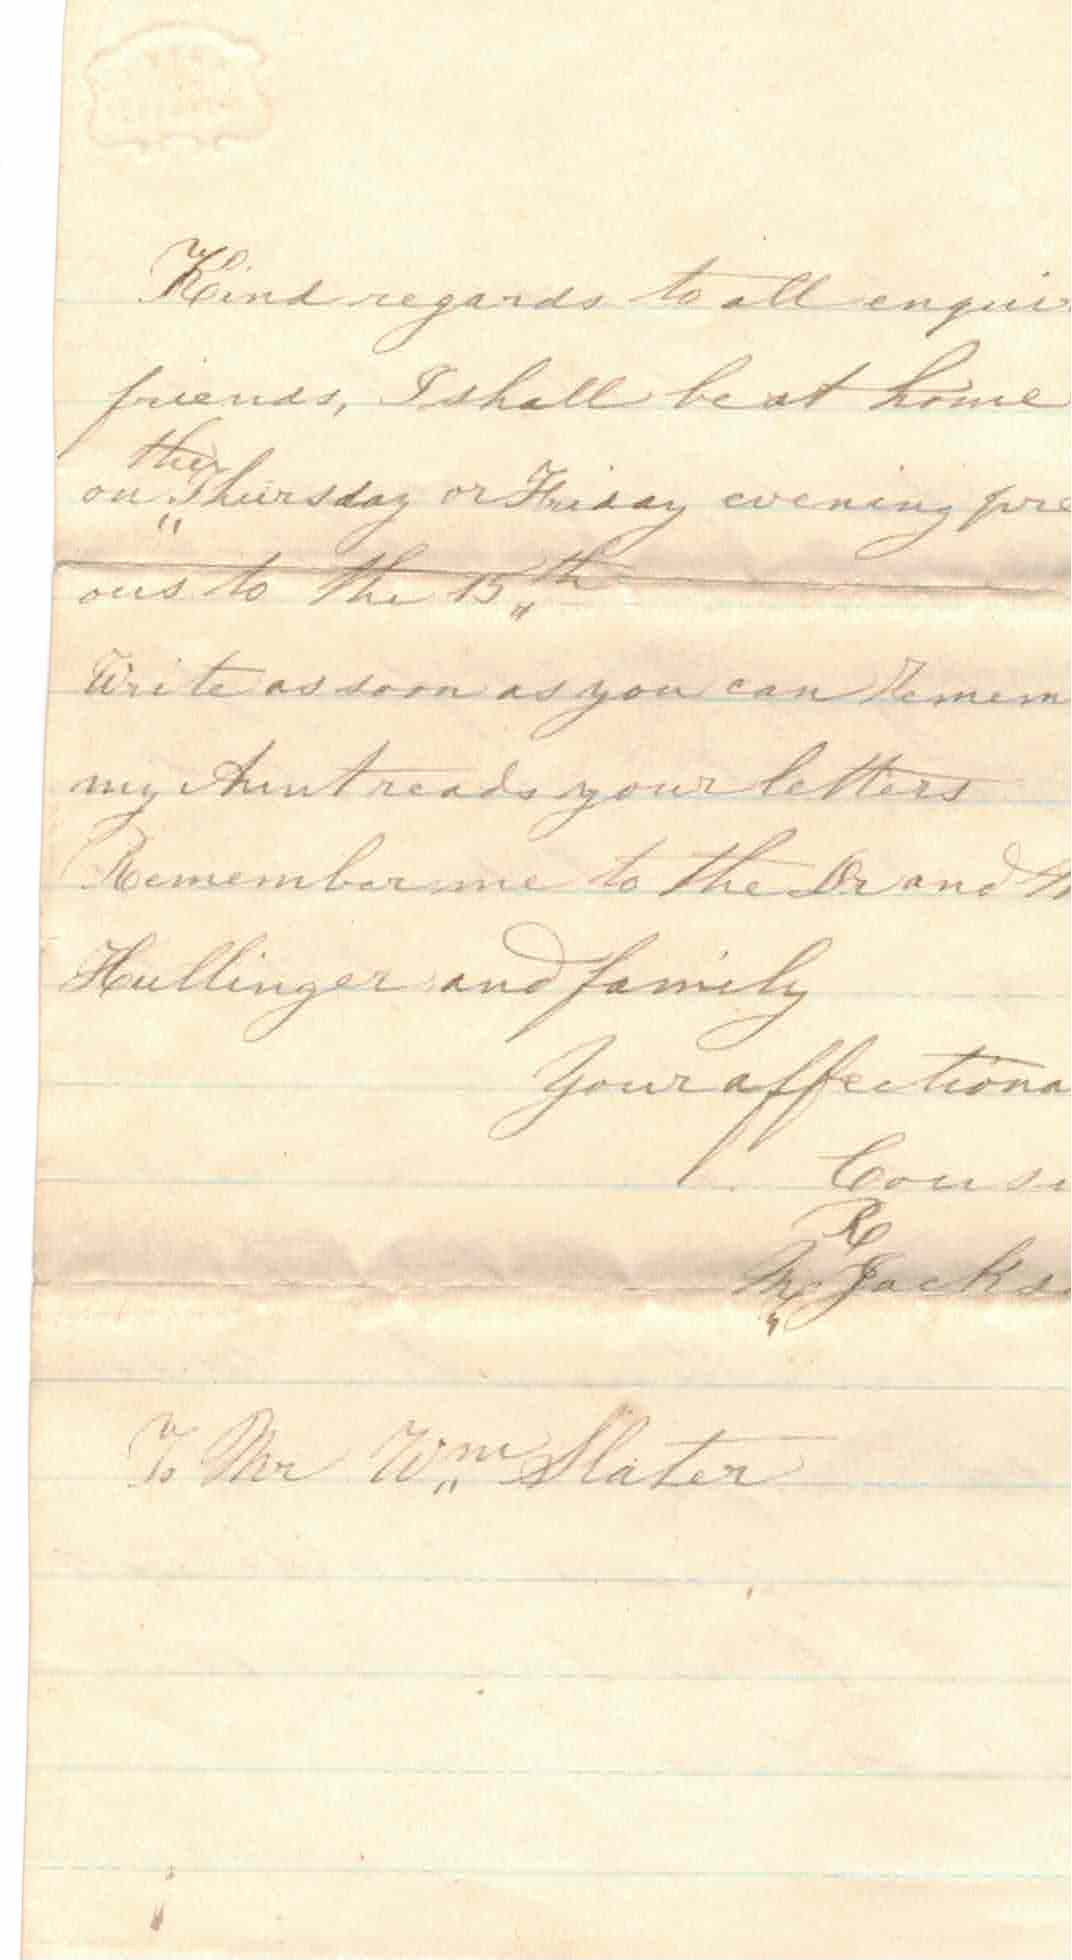 Kind regards to all enquir
friends, I shall be at home
the
on Thursday or Friday evening pre
ous to the 15th
Write as soon as you can Remem
my Aunt reads your letters
Remember me to the Dr and
Hullinger and family
Your affectiona
Cousi
R
Jackso
To Mr Wm Slater